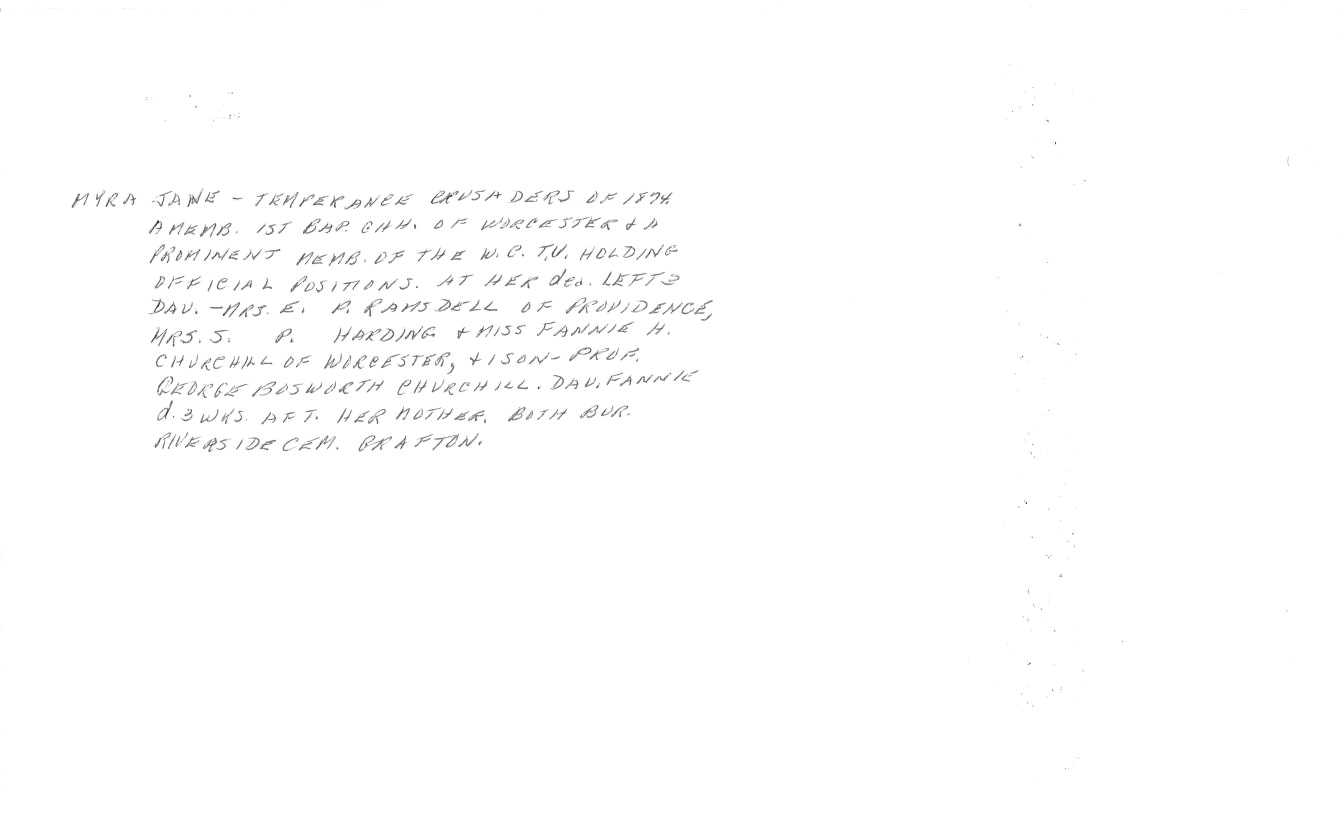 MYRA JANE – TEMPERANCE CRUSADERS OF 1874.
A MEMB. 1ST BAP. CHH. OF WORCESTER & A
PROMINENT MEMB. OF THE W.C.T.U. HOLDING
OFFICIAL POSITIONS. AT HER dec. LEFT 3
DAU. – MRS. E. P. RAMSDELL OF PROVIDENCE,
MRS. S. P. HARDING & MISS FANNIE H.
CHURCHILL OF WORCESTER, & 1 SON – PROF.
GEORGE BOSWORTH CHURCHILL. DAU. FANNIE
d. 3 WKS. AFT. HER MOTHER. BOTH BUR.
RIVERSIDE CEM. GRAFTON.